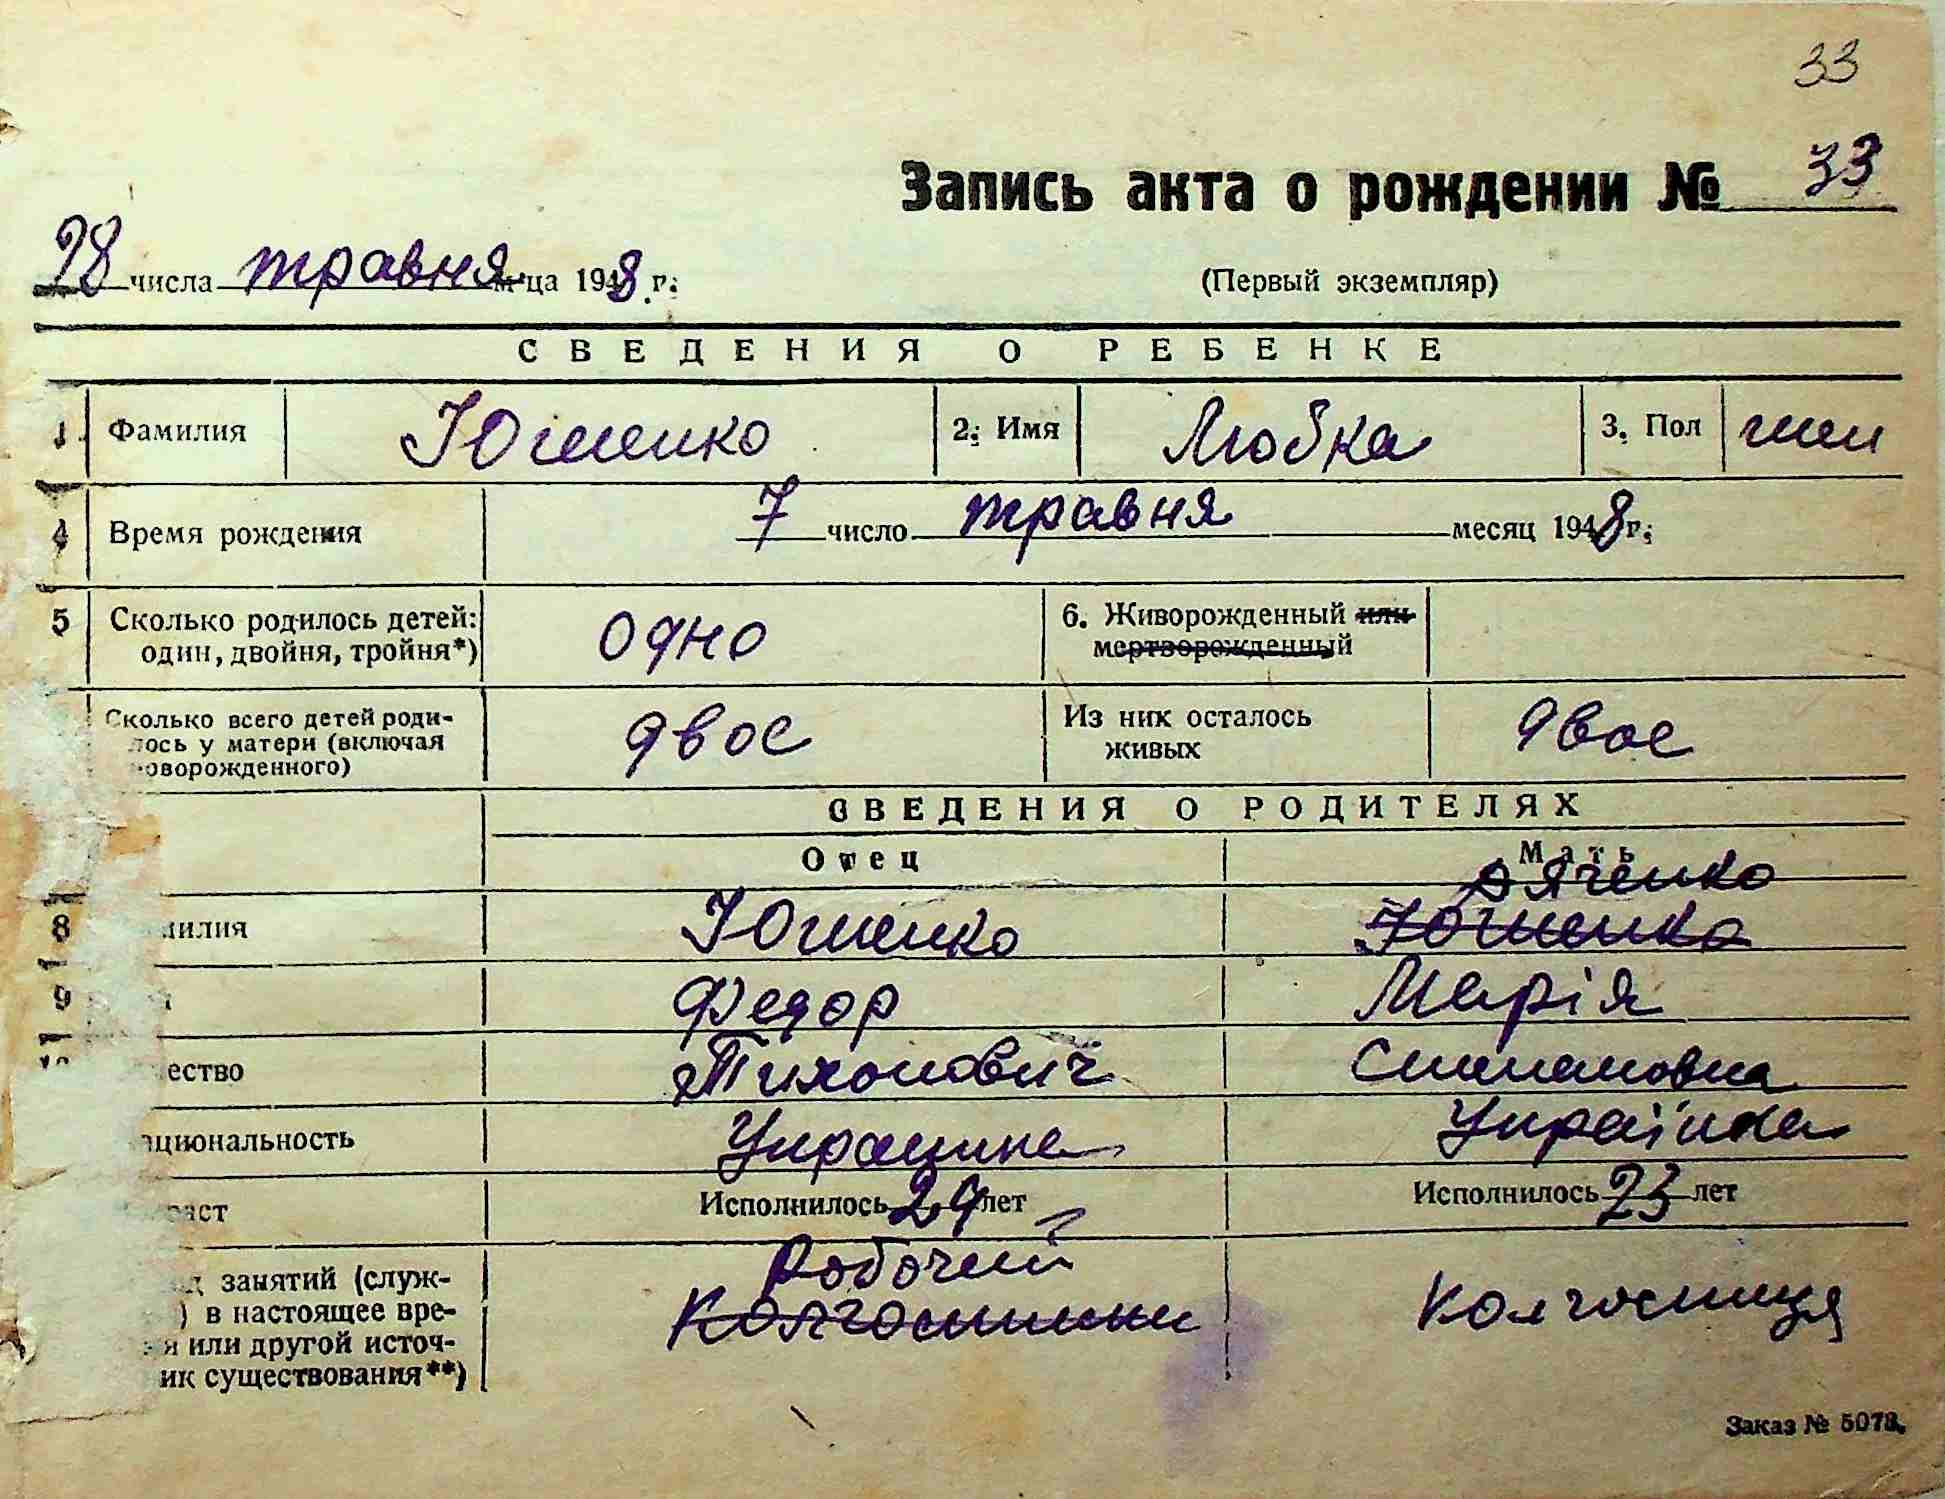 33
Запись акта о рождении № 33
28 числа травня м-ца 1948 г.
(Первый экземпляр)
СВЕДЕНИЯ О РЕБЕНКЕ
1. Фамилия Югменко 2. Имя Любка 3. Пол жен
4 Время рождения 7 число травня месяц 1948 г.
5 Сколько родилось детей: один, двойня, тройня*) одно 6. Живорожденный или мертворожденный
Сколько всего детей роди-
лось у матери (включая
новорожденного) двоє Из них осталось живых двоє
СВЕДЕНИЯ О РОДИТЕЛЯХ
Отец Мать
Дяченко
8 милия Югменко Югменко
9 Федор Марія
10 чество Тихонович Степановна
ациональность Українка
раст Исполнилось 29 лет Исполнилось 23 лет
Робочий
д занятий (служ-
) в настоящее вре-
я или другой источ-
ик существования**) Колгоспник Колгоспниця
Заказ № 5073.